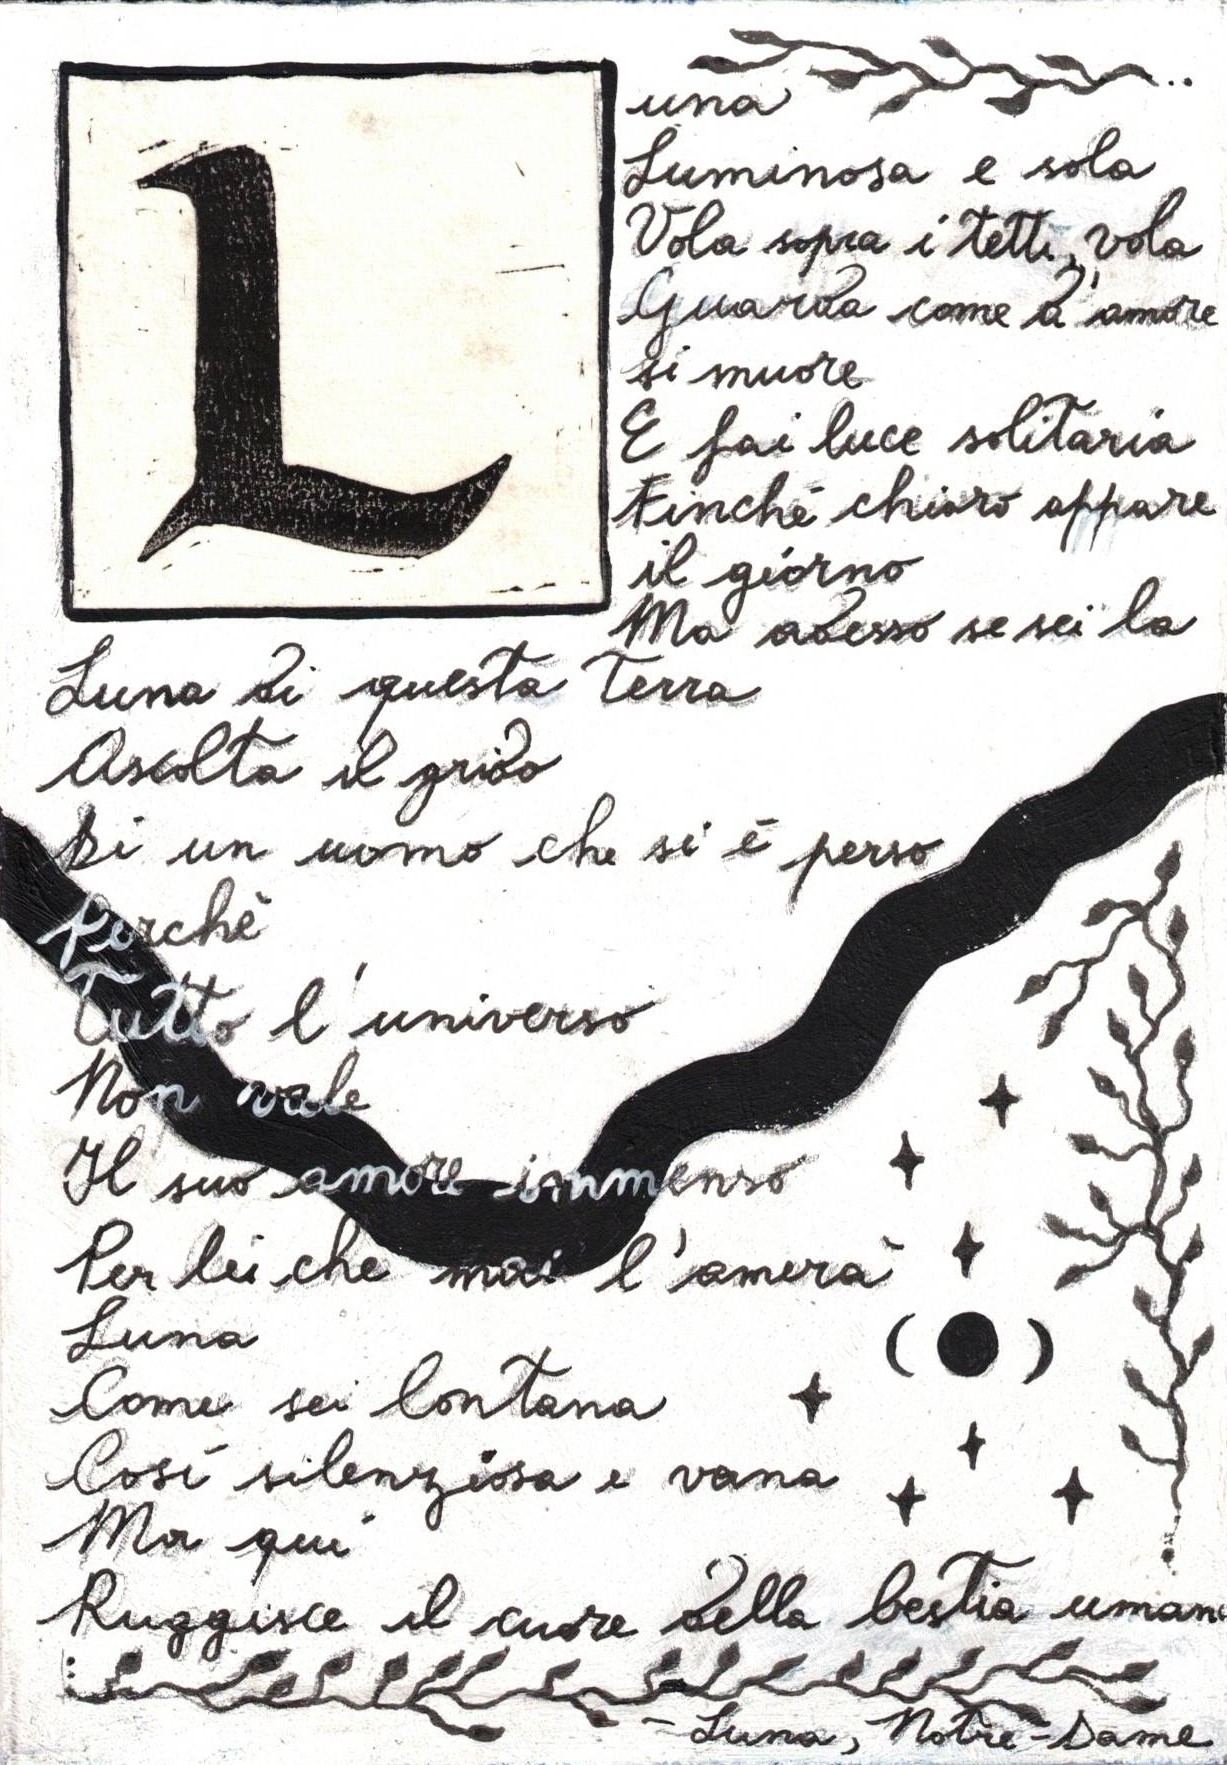 Luna
Luminosa e sola
Vola sopra i tetti, vola
Guarda come d'amore
si muore
E fai luce solitaria
Finché chiaro appare
il giorno
Ma adesso se sei la
Luna di questa Terra
Ascolta il grido
Di un uomo che si è perso
Perché
Tutto l'universo
Non vale
Il suo amore immenso
Per lei che mai l'amerà
Luna
Come sei lontana
Così silenziosa e vana
Ma qui
Ruggisce il cuore della bestia umana
- Luna, Notre-Dame